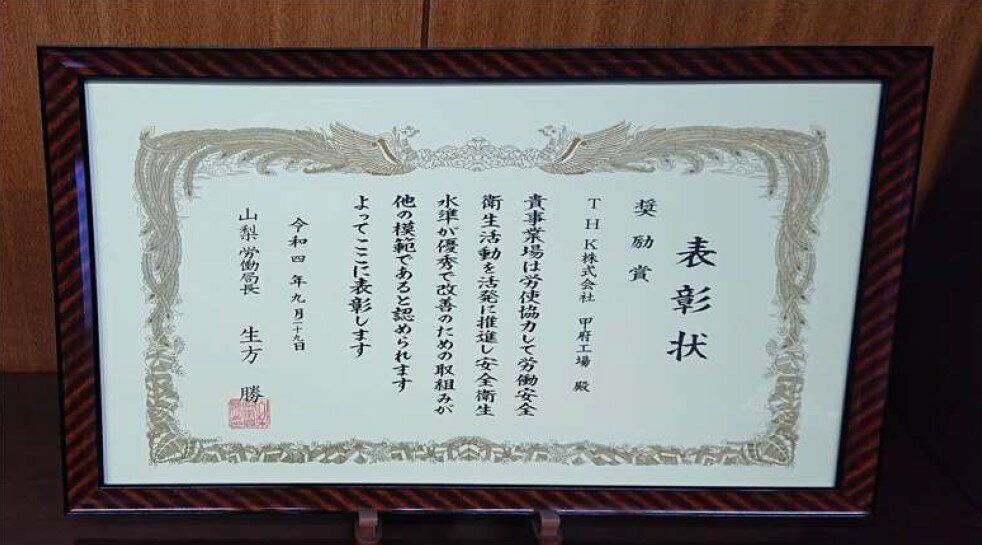 表彰状
奨励賞
THK株式会社 甲府工場 殿
貴事業場は労使協力して労働安全
衛生活動を活発に推進し安全衛生
水準が優秀で改善のための取組みが
他の模範であると認められます
よってここに表彰します
令和四年九月二十九日
山梨労働局長 生方 勝